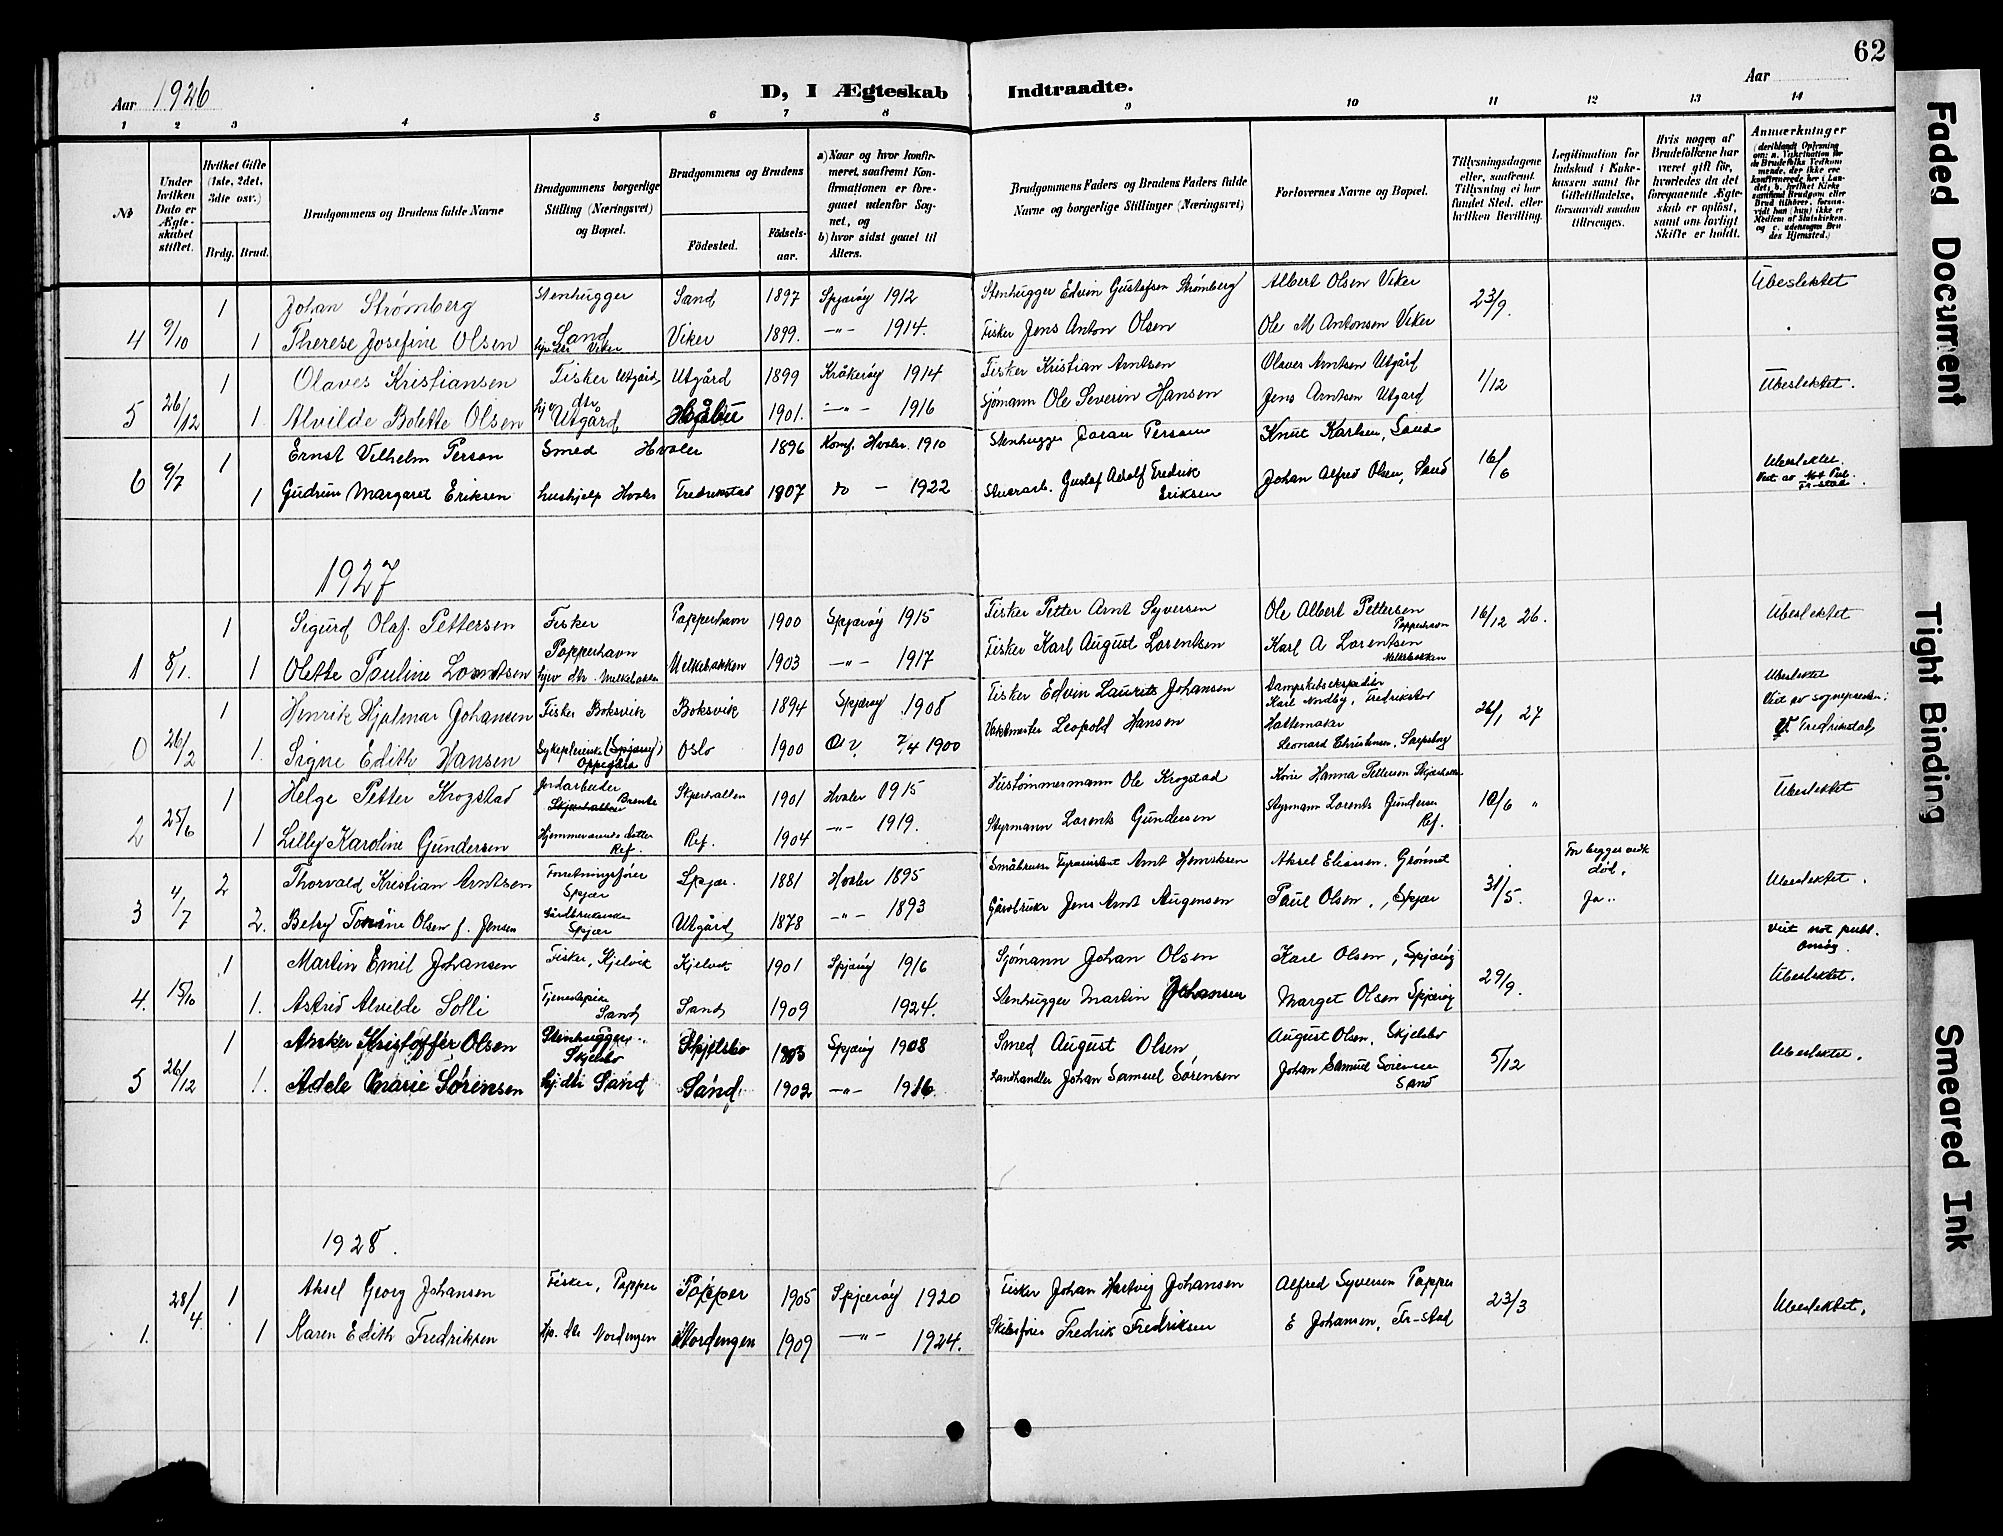 62
Aar 1926
D, I Ægteskab Indtraadte.
Aar
1 2 3 4 5 6 7 8 9 10 11 12 13 14
No
Under hvilken Dato er Ægteskabet stiftet.
Hvilket Gifte (1ste, 2det, 3die osv.)
Brdg. Brud.
Brudgommens og Brudens fulde Navne
Brudgommens borgerlige Stilling (Næringsvei) og Bopæl.
Brudgommens og Brudens
Födested.
Födselsaar.
a) Naar og hvor konfirmeret, saafremt Konfirmationen er foregaaet udenfor Sognet, og
b) hvor sidst gaaet til Alters.
Brudgommens Faders og Brudens Faders fulde Navne og borgerlige Stillinger (Næringsvei)
Forlovernes Navne og Bopæl.
Tillysningsdagene eller, saafremt Tillysning ei har fundet Sted, efter hvilken Bevilling.
Legitimation for Indskud i Enkekassen samt for Giftetilladelse, forsaavidt saadan tiltrænges.
Hvis nogen af Brudefolkene har været gift för, hvorledes da det foregaaende Ægteskab er oplöst, samt om lovligt Skifte er holdt.
Anmærkninger
1 Johan Strømberg Stenhugger Sand 1897 Spjærøy 1912 Stenhugger Edvin Gustafsen Strømberg Albert Olsen Viker 23/9. Ubeslektet
Sand
4 9/10 1 Therese Josefine Olsen hjv dtr Viker Viker 1899. —"— 1914. Fisker Jens Anton Olsen Ole M Antonsen Viker
1 Olaves Kristiansen Fisker Utgård Utgård 1899 Kråkerøy 1914 Fisker Kristian Arntsen Olaver Arntsen Utgård 1/12 Ubeslektet.
5 26/12 1. Alvilde Bolette Olsen hjv dtr Utgård 1901. —"— 1916 Sjømann Ole Severin Hansen Jens Arntsen Utgard
1 Ernst Vilhelm Person Smed Hvaler 1896 Konf. Hvaler 1910 Stenhugger Person Knut Karlsen, Sand 16/6 Ubeslektet.
6 9/7 1 Gudrun Margaret Eriksen hushjelp Hvaler Fredrikstad 1907 do — 1922 Gustaf Adolf Fredrik Eriksen Johan Alfred Olsen, Sand Fr-stad
1927
1 Sigurd Olaf. Pettersen Fisker Papperhavn 1900 Spjærøy 1915 Fisker Petter Arnt Syversen Ole Albert Pettersen Papperhavn 16/12 26. Ubeslektet
Papperhavn
1 8/1. 1 Olette Pauline Lorentsen hjev dtr. Melkebakken Melkebakken 1903 —"— 1917 Fisker Karl August Lorentsen Karl A Lorentsen Melkebakken
Ubeslektet
1 Henrik Hjalmar Johansen Fisker Boksvik Boksvik 1894 Spjærøy 1908 Fisker Edvin Laurits Johansen Dampskibsekspeditör Karl Fredrikstad 26/1 27 Viet av sognepresten i
0 26/2 1. Signe Edith Hansen Sykepleierske (Spjærøy) Oppegård Oslo 1900 7/4 1900 Vaktmester Leopold Hansen Hattemaker Leonard Christensen, Sarpsborg Fredrikstad
1 Helge Petter Krogstad Jordarbeider Skjærhalden Skjærhallen 1901 Hvaler 1915 Hustømmermann Ole Krogstad Hanna Pettersen Skjærhallen 10/6 " Ubeslektet
2 25/6 1 Lilly Karoline Gundersen Hjemmeværende datter Ref. Ref. 1904 —"— 1919. Styrmann Lorents Gundersen Styrmann Lorents Gundersen Ref.
2 Thorvald Kristian Arntsen Forretningsfører Spjær Spjær. 1881 Hvaler 1895 Arnt Henriksen Aksel Eliassen, Grønnet 31/5. For begges vedk død. Ubeslektet.
3 4/7 2. Betsy Olsen f. Jensen Gårdbrukerske Spjær Utgård 1878 —"— 1893 Gårdbruker Jens Arnt Augensen Paul Olsen, Spjær Ja..
viet not publ.
1 Martin Emil Johansen Fisker, Kjelvik Kjelvik 1901 Spjærøy 1916 Sjømann Johan Olsen Karl Olsen, Spjærøy 29/9. Ubeslektet.
4. 15/10 1. Astrid Alvilde Solli Tjenestepike Sand Sand 1909 1924. Stenhugger Martin Johansen Marget Olsen Spjærøy
1 Anker Kristoffer Olsen Stenhugger Skjelsbo Skjelsbo 1893 Spjærøy 1908 Smed August Olsen August Olsen, Skjelsbo 5/12 Ubeslektet.
5 26/12 1. Adele Marie Sørensen hj.dtr Sand Sand. 1902 —"— 1916. Landhandler Johan Samuel Sørensen Johan Samuel Sörensen Sand
1928.
1 Aksel Georg Johansen Fisker, Papper Papper 1905 Spjærøy 1920 Fisker Johan Hartvig Johansen Alfred Syversen Papper 23/3 Ubeslektet.
1. 28/4. 1 Karen Edith Fredriksen Hj. dtr Nordengen Nordengen 1909 —"— 1924. Skibsfører Fredrik Fredriksen E Johansen, Fr-stad
Faded Document
Tight Binding
Smeared Ink